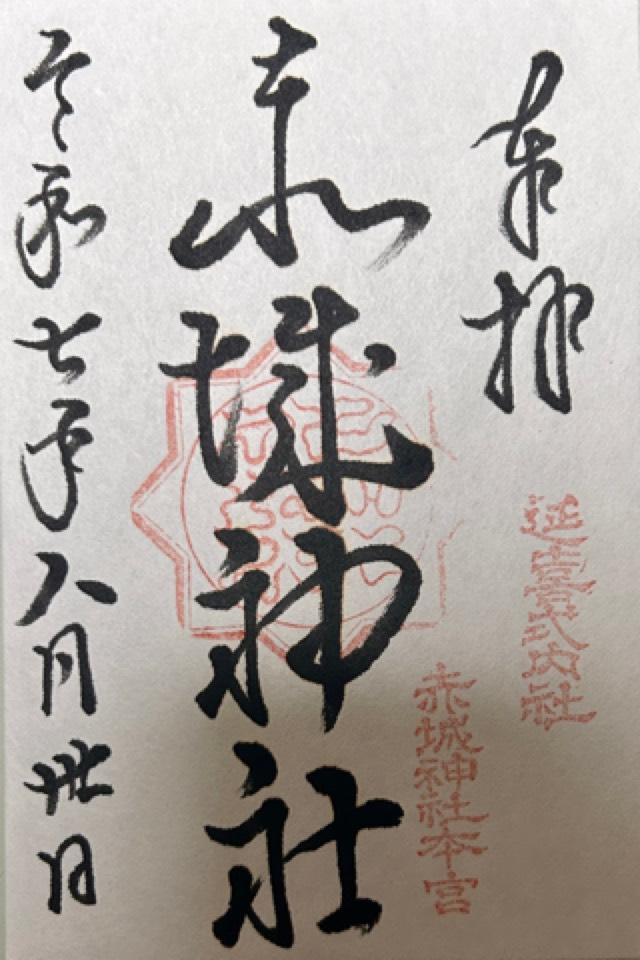 奉拝
延喜式内社
赤城神社本宮
赤城神社
令和七年八月卅日